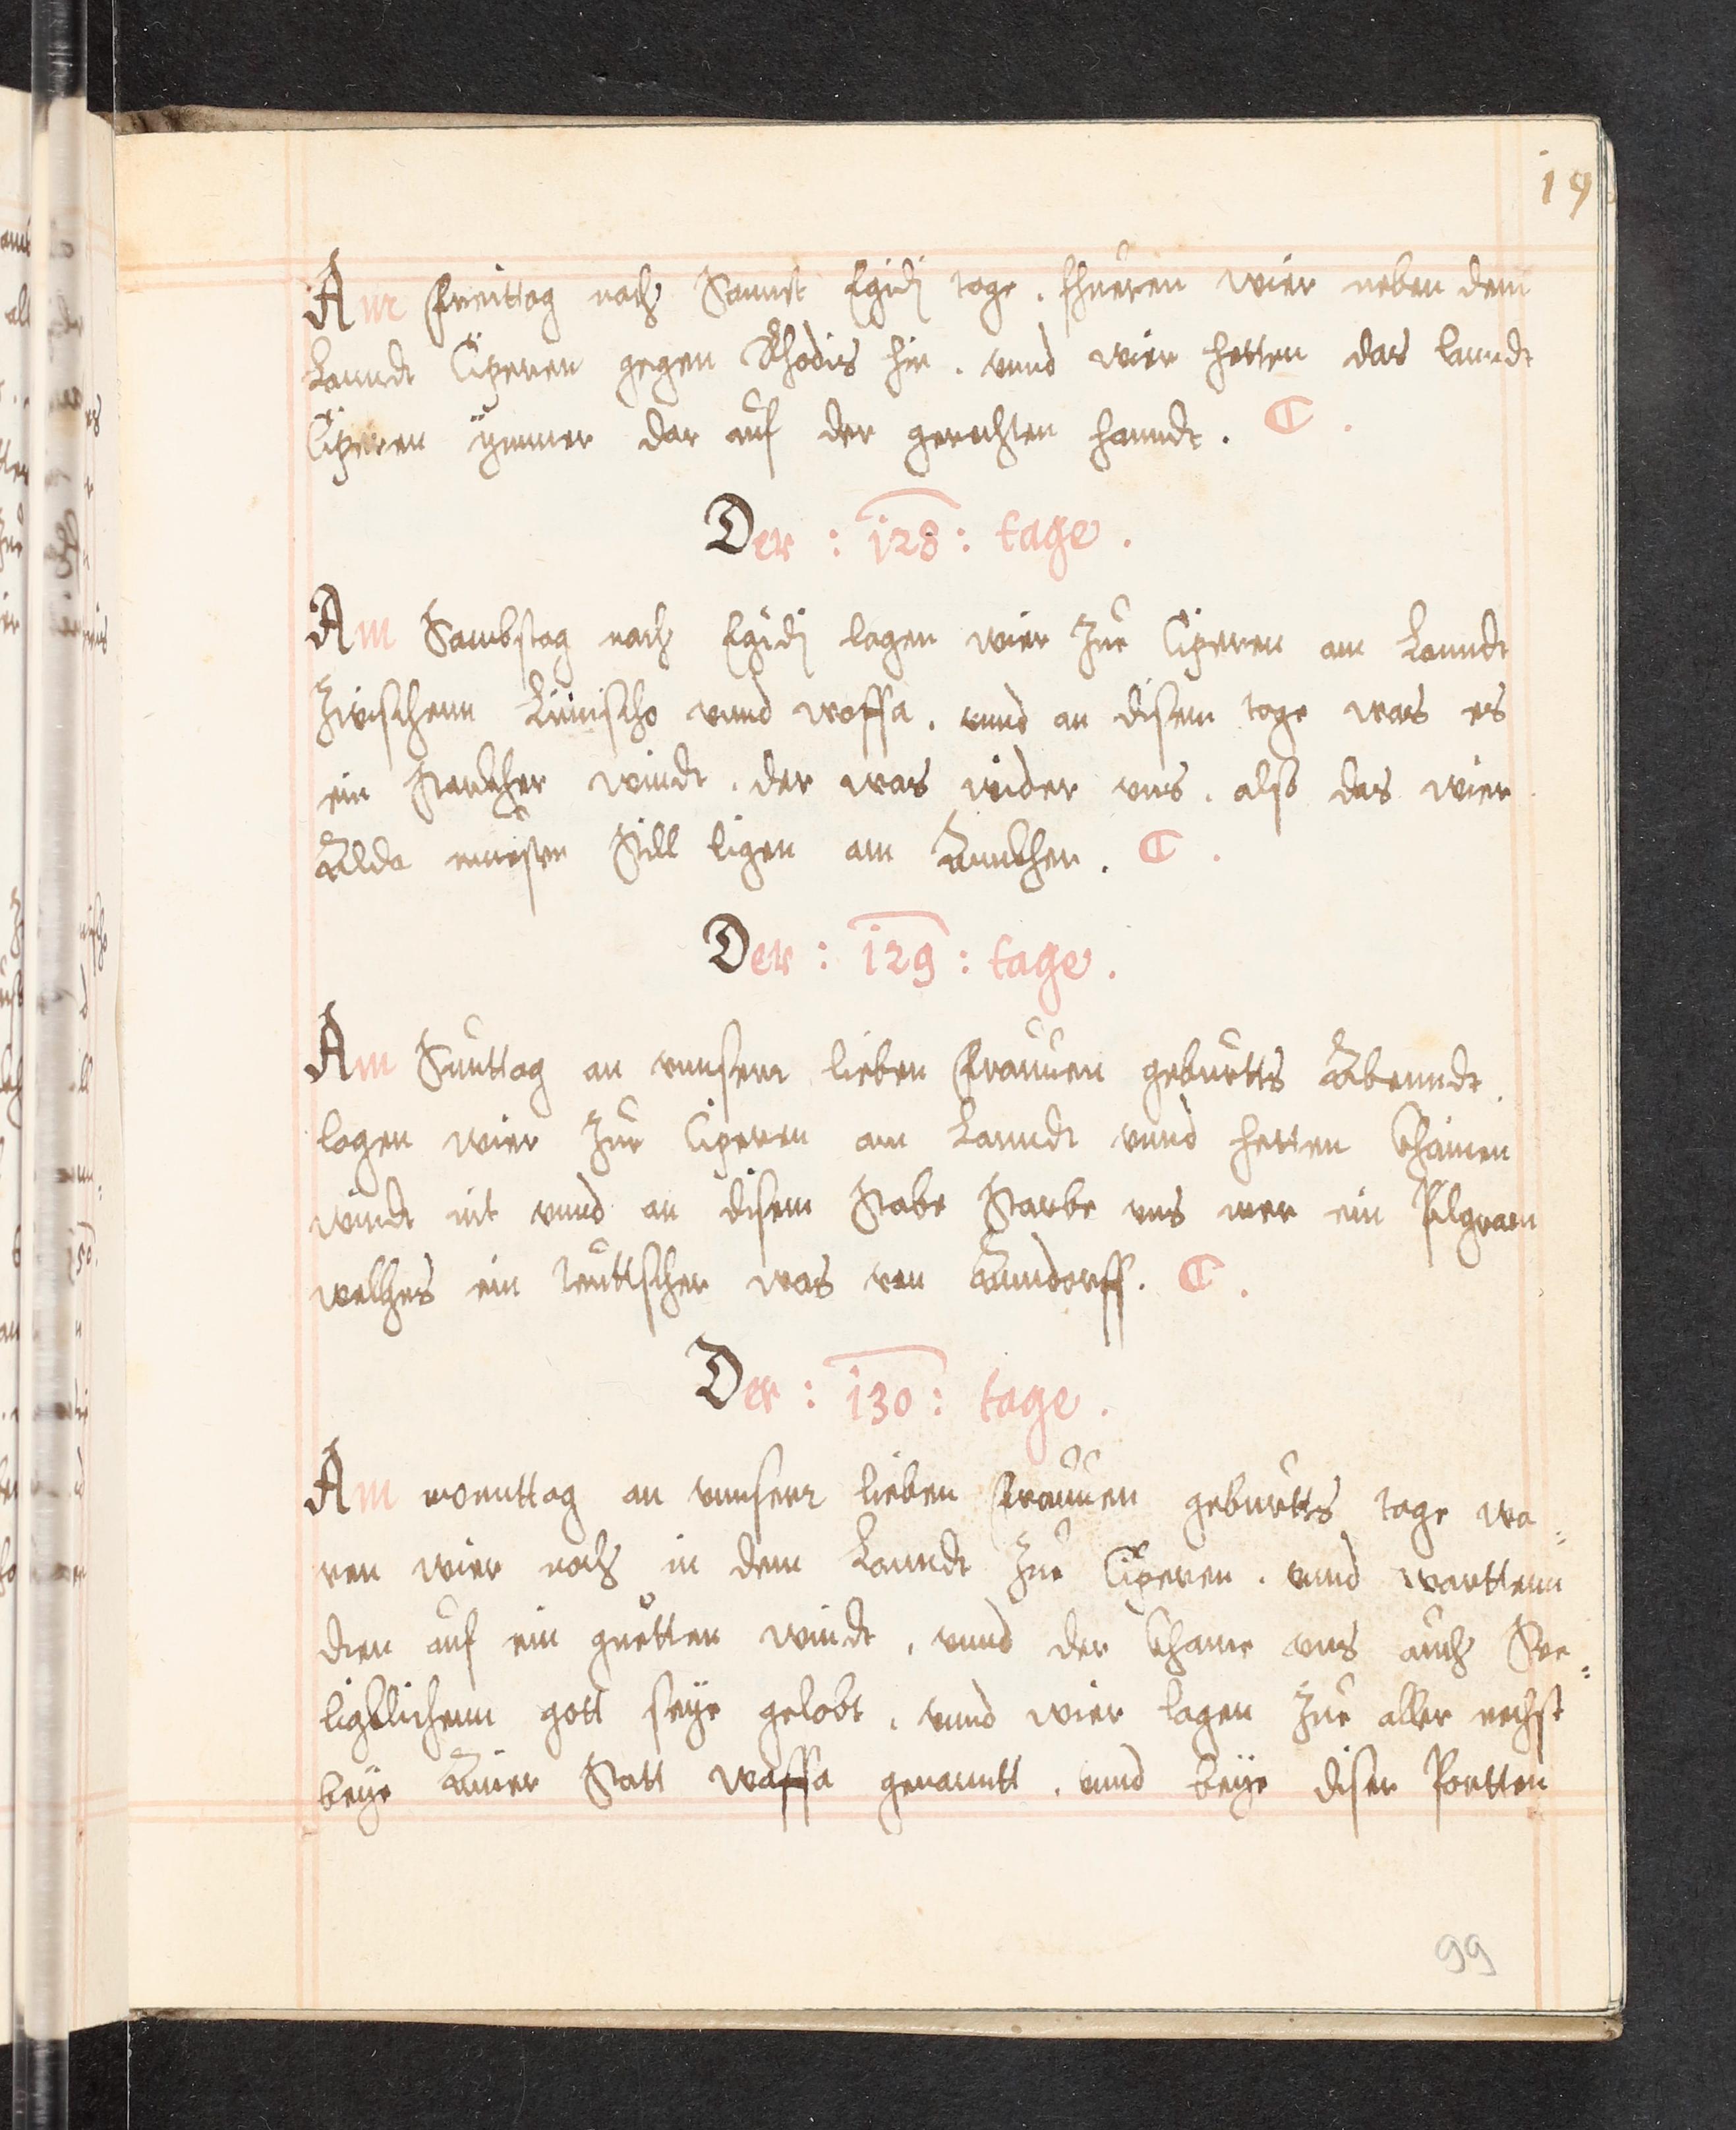 19
Am Freittag nach Sannt Egidj tage . fhueren wier neben dem
Lanndt Cipren gegen Rhodis hin . vnnd wier hetten das lanndt
Cipren ÿmmer dar auf der gerechten hanndt . C .
Der : 128 : tage .
Am Sambstag nach Egidj lagen wier zue Cipren am Lanndt
Zwischenn Limischo vnnd waffa . vnnd an disem tage was es
ein starckher windt . der was wider vns . also das wier
Alda muesten still ligen am Annckher . C .
Der : 129 : tage .
Am Sunttag an vnnserr lieben Frauuen geburtts Abenndt .
lagen wier zue Cipren am Lanndt vnnd hetten khainen
windt nit vnnd an disem starbe vns mer ein Pilgram
welhes ein teuttscher was von Anndorff . C .
Der : 130 : tage .
Am monttag an vnnserr lieben Frauuen geburtts tage wa=
ren wier noch in dem Lanndt zue Cipren . vnnd warttenn
dien auf ein guetten windt , vnnd der khame vns auch
gott seye gelobt , vnnd wier lagen zue aller nechst
beye Ainer Statt waffa genanntt . vnnd beye diser Portten
99